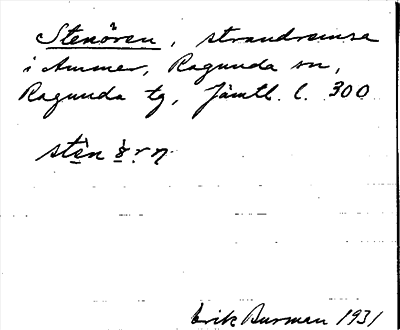 Stenören, strandremsa
i Ammer, Ragunda sn,
Ragunda tg, Jämtl. l. 300
stèn ö̀rn
Erik Burman 1931